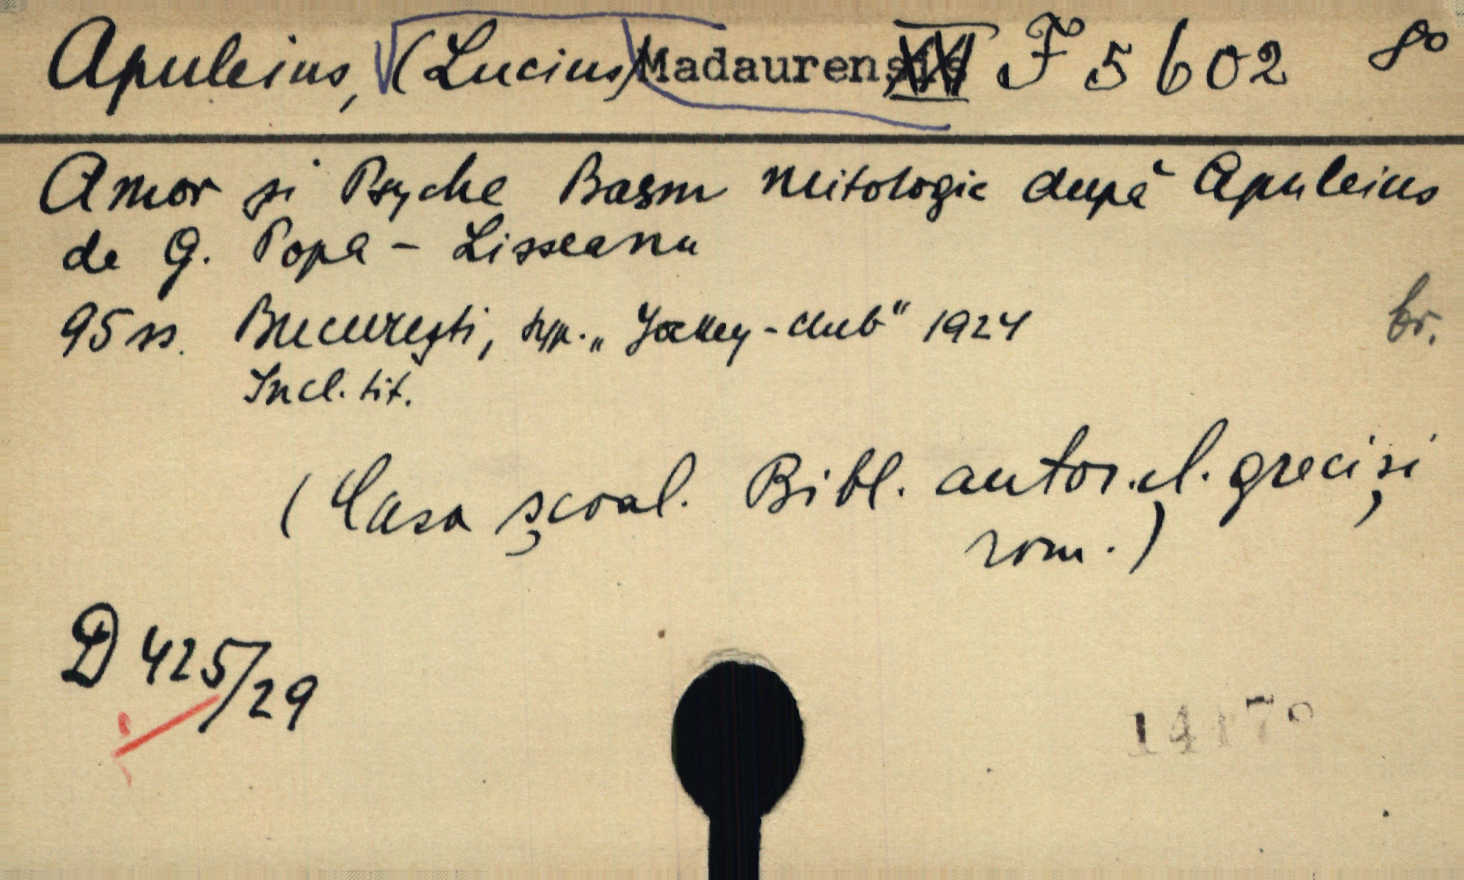 Apuleius, (Lucius) Madaurensis F 5602 8°
Amor și Psyche Basm Mitologic după Apuleius
de G. Popa-Lisseanu
95 ss. București, typ. „Jockey-club" 1924
br.
Incl. tit.
(Casa școal. Bibl. autor. cl. greci și
rom.)
D 425/29